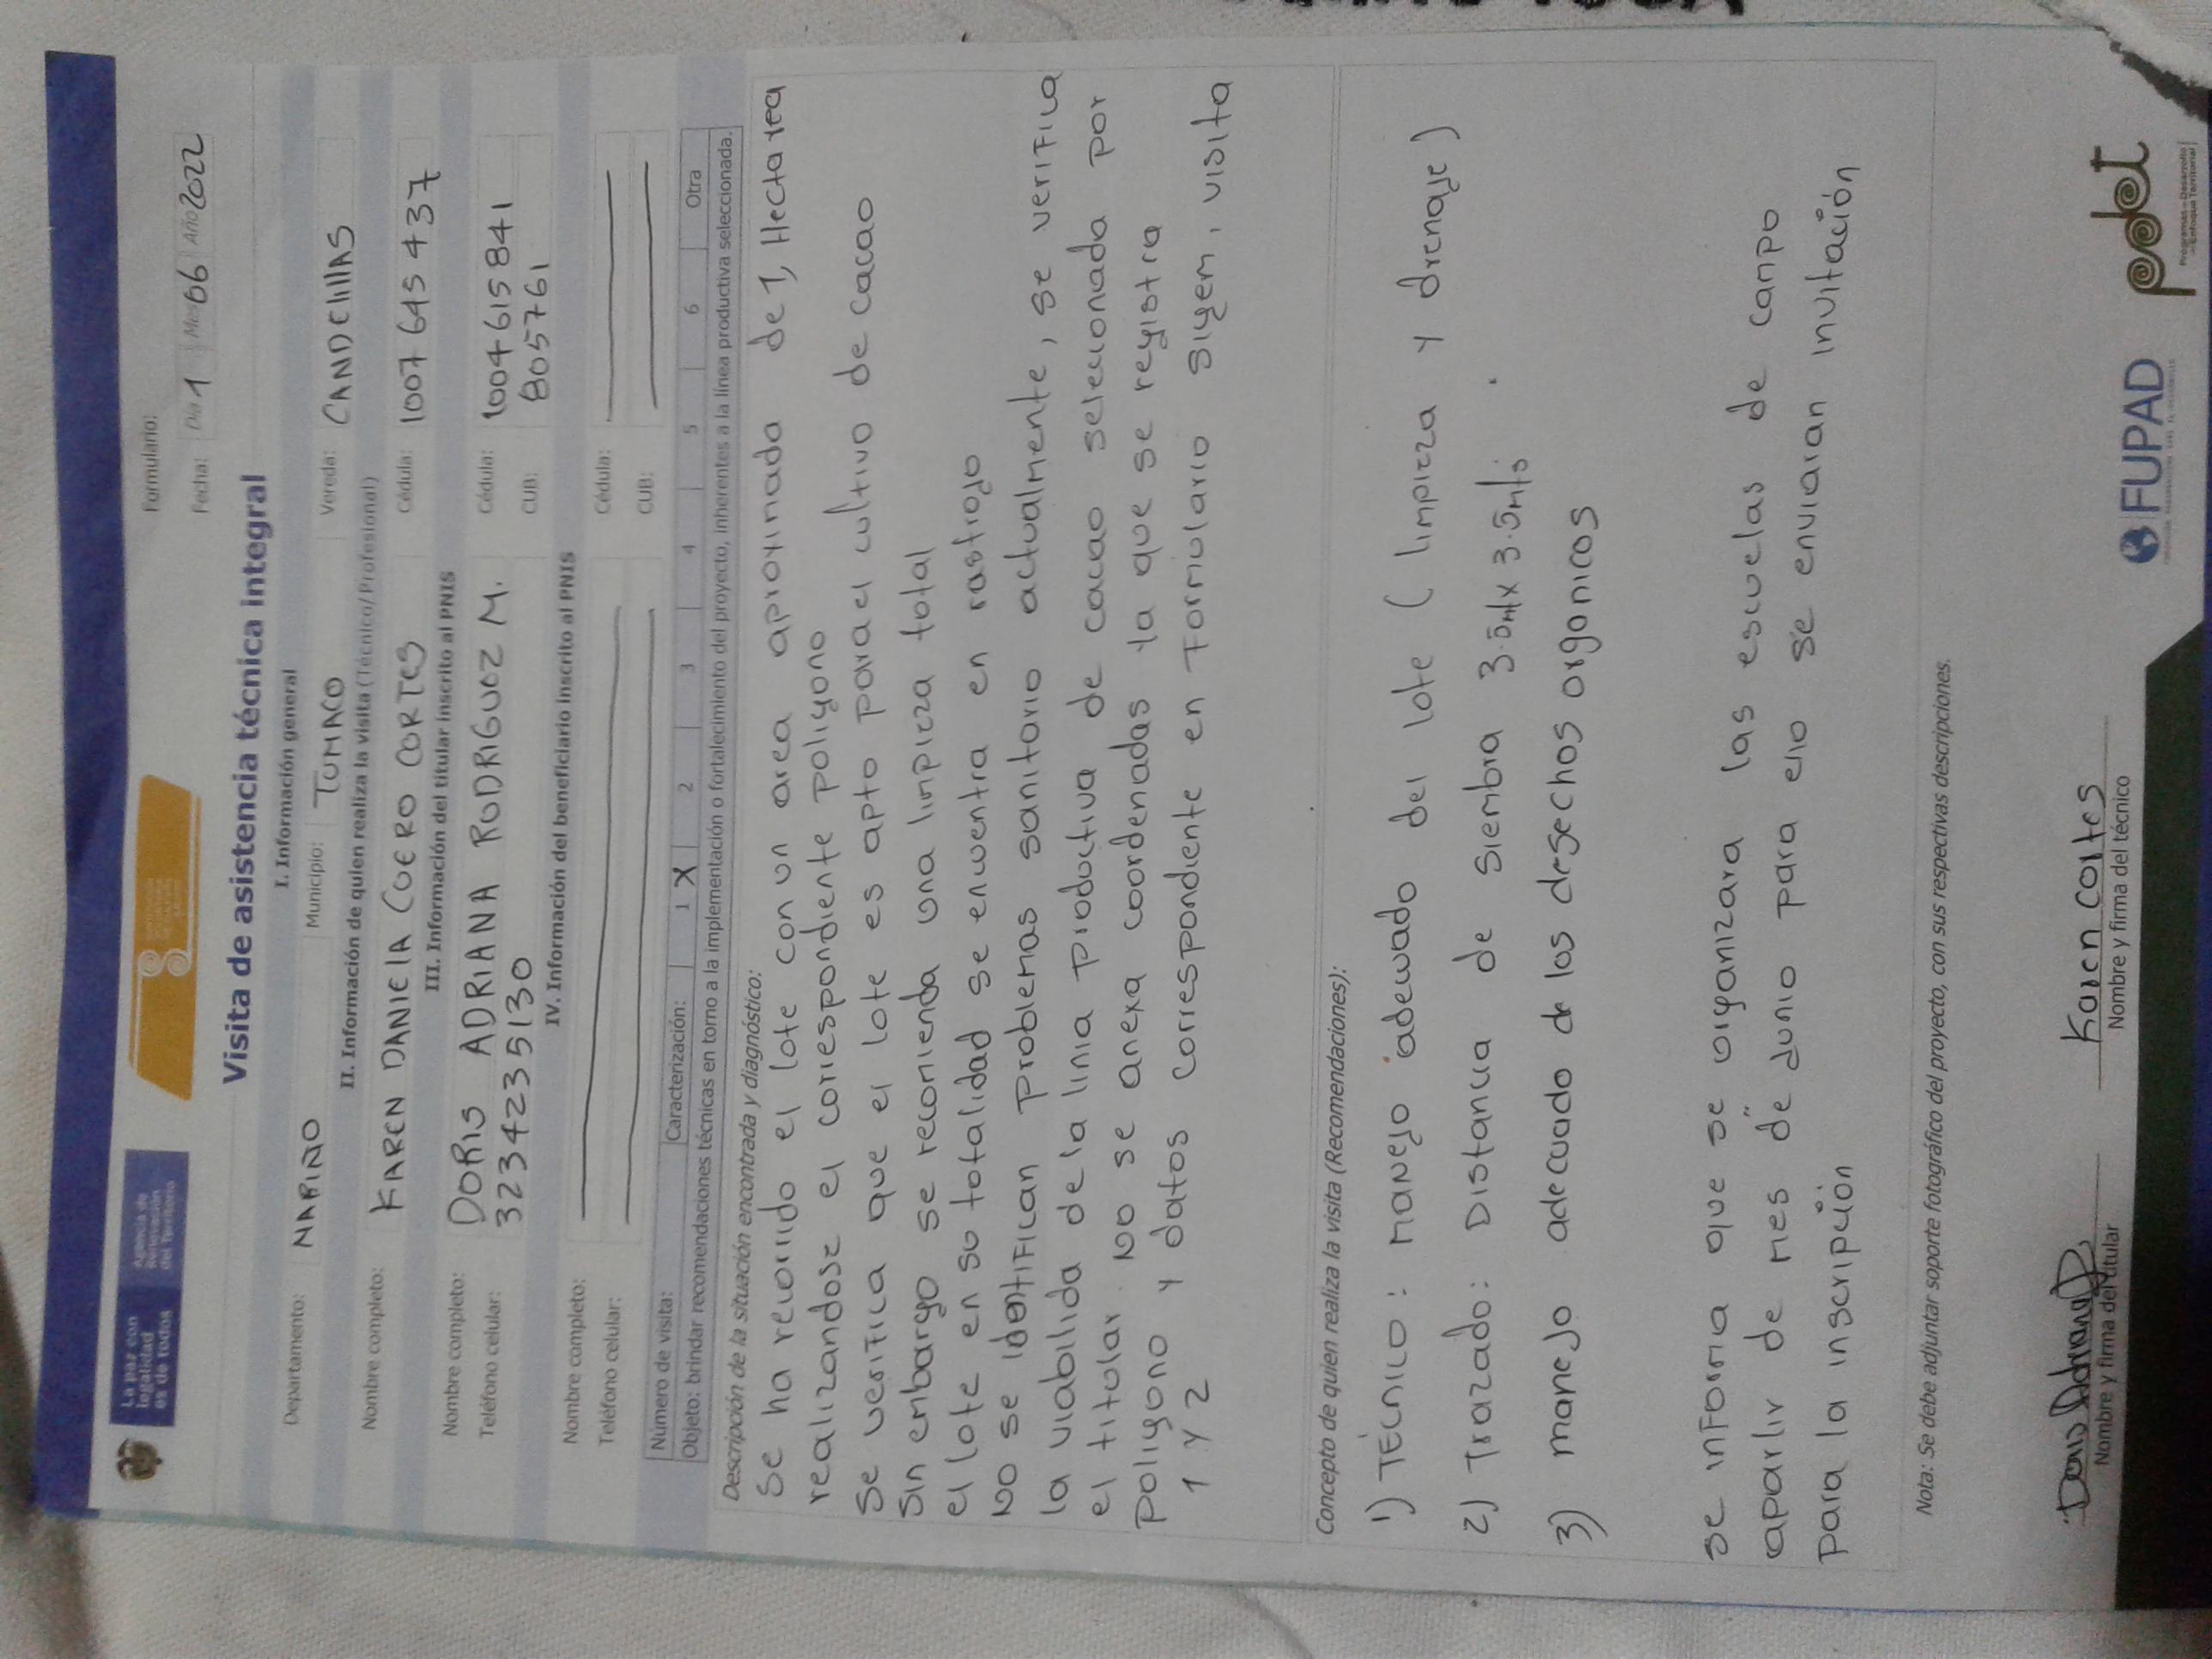 La paz con
legalidad
es de todos
Agencia de
Renovación
del Territorio
Formulario:
Fecha: Día 1 Mes 06 Año 2022
Visita de asistencia técnica integral
I. Información general
Departamento: NARIÑO Municipio: TUMACO Vereda: CANDElillAS
II. Información de quien realiza la visita (Técnico/Profesional)
Nombre completo: KAREN DANIELA CUERO CORTES Cédula: 1007 645 437
III. Información del titular inscrito al PNIS
Nombre completo: DORIS ADRIANA RODRIGUEZ M. Cédula: 1004615841
Teléfono celular: 3234235130 CUB: 805761
IV. Información del beneficiario inscrito al PNIS
Nombre completo: Cédula:
Teléfono celular: CUB:
Número de visita: Caracterización: 1 X 2 3 4 5 6 Otra
Objeto: brindar recomendaciones técnicas en torno a la implementación o fortalecimiento del proyecto, inherentes a la línea productiva seleccionada.
Descripción de la situación encontrada y diagnóstico:
Se ha recorrido el lote con un area aproximada de 1, Hectarea
realizandose el correspondiente poligono
Se verifica que el lote es apto para el cultivo de cacao
Sin embargo se recomienda una limpieza total
el lote en su totalidad se encuentra en rastrojo
No se identifican problemas sanitario actualmente, se verifica
la viabilida de la linia productiva de cacao selecionada por
el titular. No se anexa coordenadas la que se registra
poligono y datos correspondiente en Formulario siyem, visita
1 y 2
Concepto de quien realiza la visita (Recomendaciones):
1) TÉCNICO: manejo adecuado del lote (limpieza y drenaje)
2) Trazado: Distancia de siembra 3.5mt x 3.5mts.
3) manejo adecuado de los desechos organicos
se informa que se organizara las escuelas de campo
apartir de mes de Junio para ello se enviaran invitación
para la inscripción
Nota: Se debe adjuntar soporte fotográfico del proyecto, con sus respectivas descripciones.
Doris Adriana Karen cortes
Nombre y firma del titular Nombre y firma del técnico
FUPAD
pdet
Programas de Desarrollo
con Enfoque Territorial